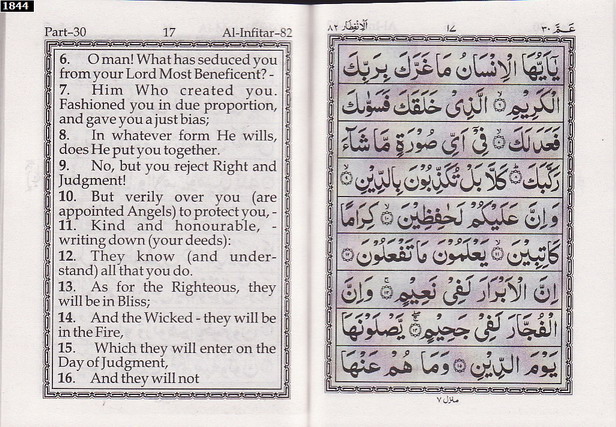 1844
Part-30 17 Al-Infitar-82
6. O man! What has seduced you
from your Lord Most Beneficent? -
7. Him Who created you.
Fashioned you in due proportion,
and gave you a just bias;
8. In whatever form He wills,
does He put you together.
9. No, but you reject Right and
Judgment!
10. But verily over you (are
appointed Angels) to protect you, -
11. Kind and honourable, -
writing down (your deeds):
12. They know (and under-
stand) all that you do.
13. As for the Righteous, they
will be in Bliss;
14. And the Wicked - they will be
in the Fire,
15. Which they will enter on the
Day of Judgment,
16. And they will not
عَمَّ ٣٠ ١٧ الْاِنْفِطَار ٨٢
يٰۤاَيُّهَا الْاِنْسَانُ مَا غَرَّكَ بِرَبِّكَ
الْكَرِيْمِ ۙ‏﴿۶﴾ الَّذِىْ خَلَقَكَ فَسَوّٰٮكَ
فَعَدَلَكَ ۙ‏﴿۷﴾ فِىْۤ اَىِّ صُوْرَةٍ مَّا شَآءَ
رَكَّبَكَ ؕ‏﴿۸﴾ كَلَّا بَلْ تُكَذِّبُوْنَ بِالدِّيْنِ ۙ‏﴿۹﴾
وَاِنَّ عَلَيْكُمْ لَحٰفِظِيْنَ ۙ‏﴿۱۰﴾ كِرَامًا
كَاتِبِيْنَ ۙ‏﴿۱۱﴾ يَعْلَمُوْنَ مَا تَفْعَلُوْنَ‏ ﴿۱۲﴾
اِنَّ الْاَبْرَارَ لَفِىْ نَعِيْمٍ ۚ‏﴿۱۳﴾ وَاِنَّ
الْفُجَّارَ لَفِىْ جَحِيْمٍ ۖۚ‏﴿۱۴﴾ يَّصْلَوْنَهَا
يَوْمَ الدِّيْنِ‏ ﴿۱۵﴾ وَمَا هُمْ عَنْهَا
منزل ٧